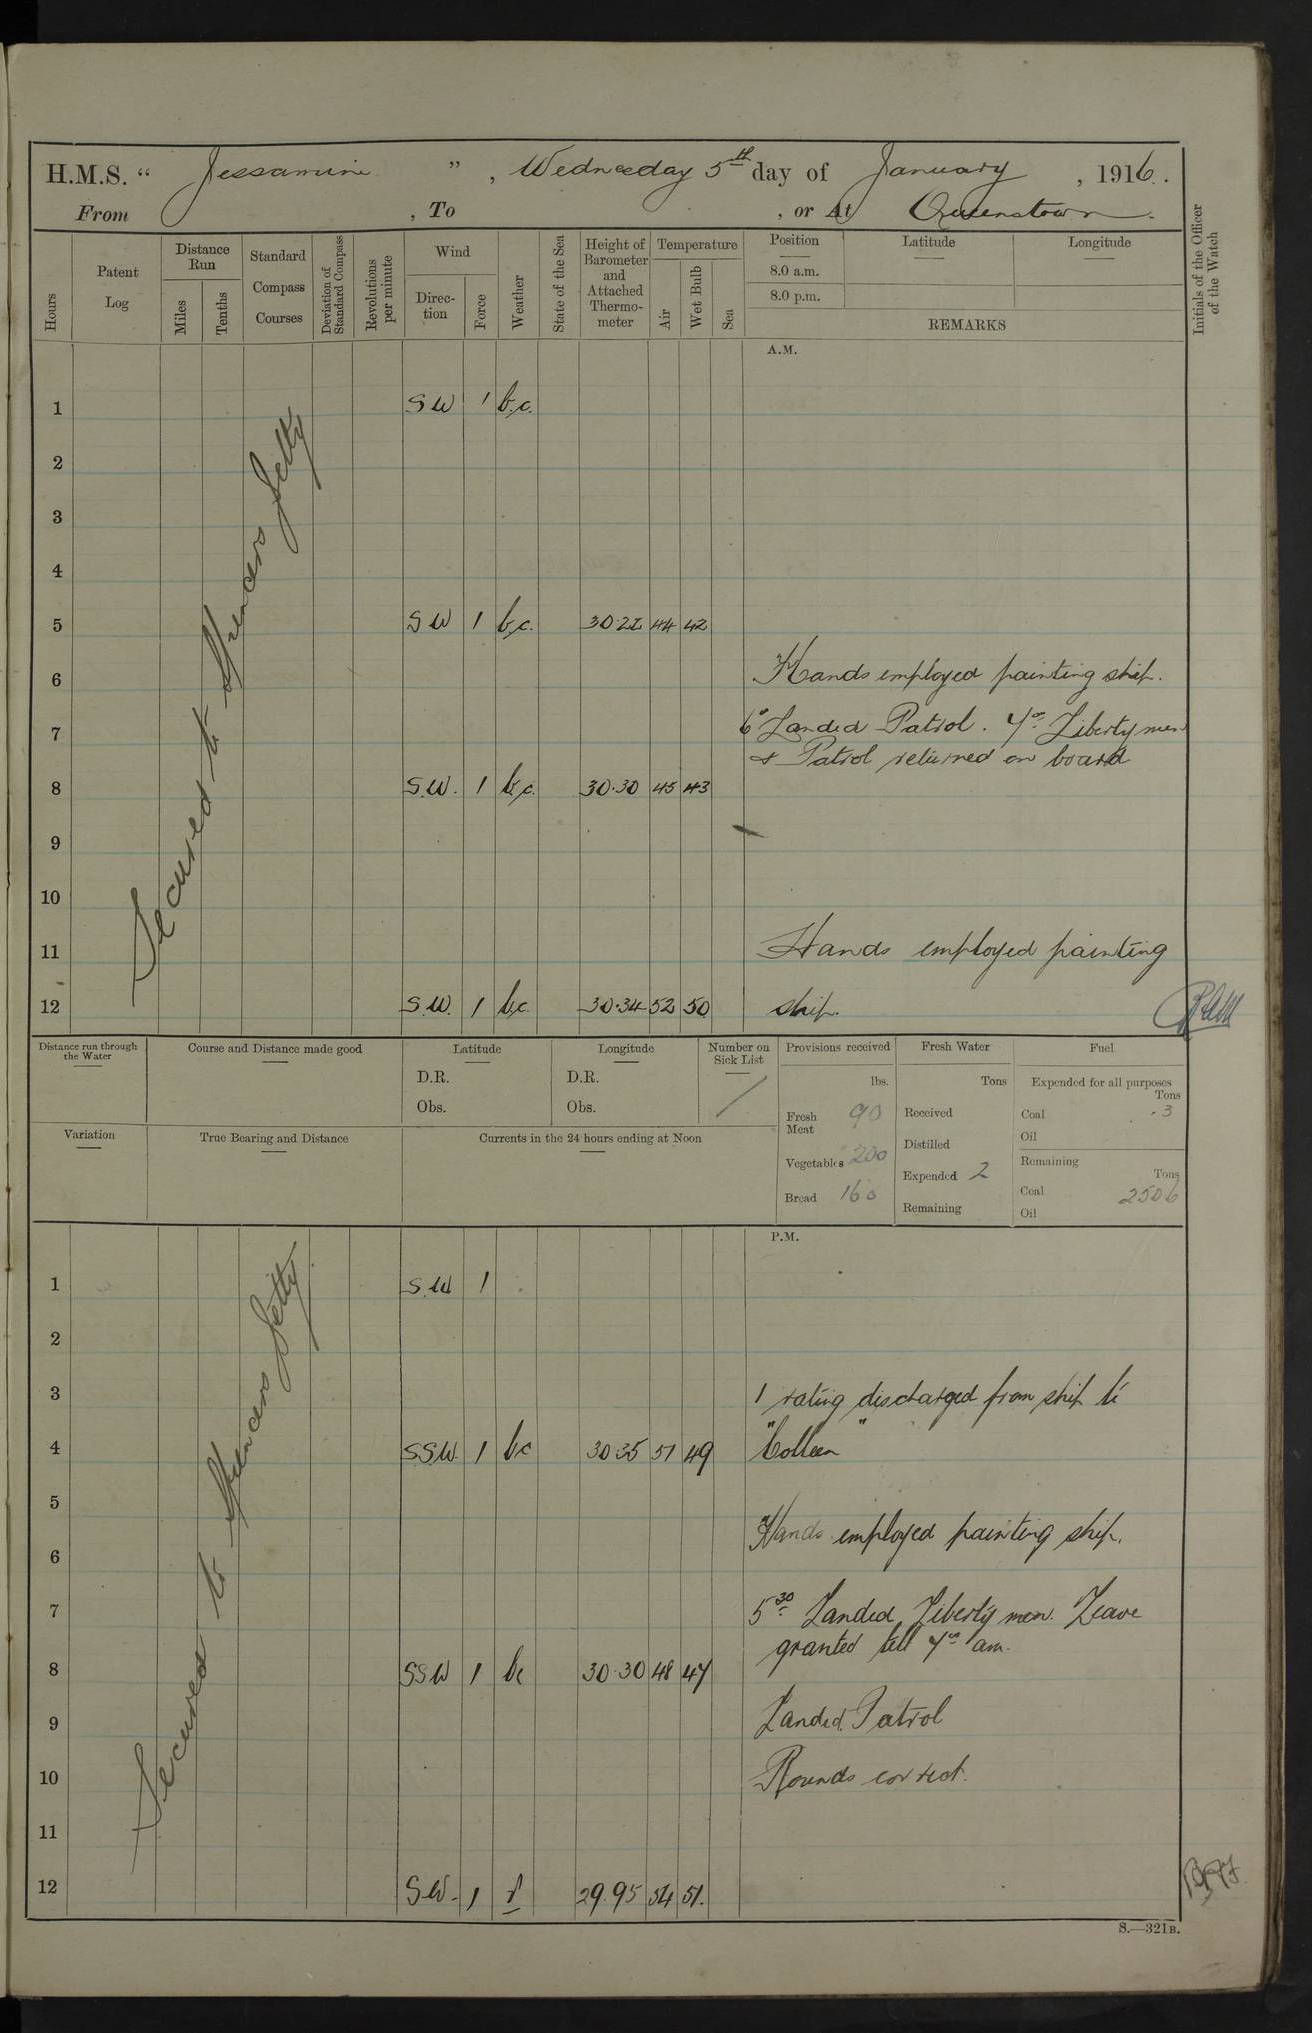 H.M.S. “ Jessamine ” , Wednesday 5th day of January , 1916.
From , To , or At Queenstown.
Hours
Patent Log
Distance Run
Miles
Tenths
Standard Compass Courses
Deviation of Standard Compass
Revolutions per minute
Wind
Direc-tion
Force
Weather
State of the Sea
Height of Barometer and Attached Thermo-meter
Temperature
Air
Wet Bulb
Sea
Position
8.0 a.m.
8.0 p.m.
Latitude
Longitude
REMARKS
Initials of the Officer of the Watch
A.M.
Secured to Spencers Jetty
1 SW 1 b.c.
2
3
4
5 SW 1 b.c. 30.22 44 42
6 Hands employed painting ship.
7 6° Landed Patrol. 7oo Liberty men
& Patrol returned on board
8 S.W. 1 b.c. 30.30 45 43
9
10
11 Hands employed painting
12 S.W. 1 b.c. 30.34 52 50 ship.
Distance run through the Water
Course and Distance made good
Latitude
D.R.
Obs.
Longitude
D.R.
Obs.
Number on Sick List
/
Provisions received
lbs.
Fresh Meat 90
Vegetables 200
Bread 160
Fresh Water
Tons
Received
Distilled
Expended 2
Remaining
Fuel
Expended for all purposes
Tons
Coal .3
Oil
Remaining
Tons
Coal 2506
Oil
Variation
True Bearing and Distance
Currents in the 24 hours ending at Noon
P.M.
Secured to Spencers Jetty
1 S.W 1
2
3 1 rating discharged from ship to
4 SSW. 1 bc 30.35 51 49 "Colleen"
5
6 Hands employed painting ship.
7 5 30 Landed Liberty men. Leave
granted till 7oo am.
8 SSW 1 bc 30.30 48 47
9 Landed Patrol
10 Rounds correct.
11
12 S.W. 1 r 29.95 54 51.
S.—321B.